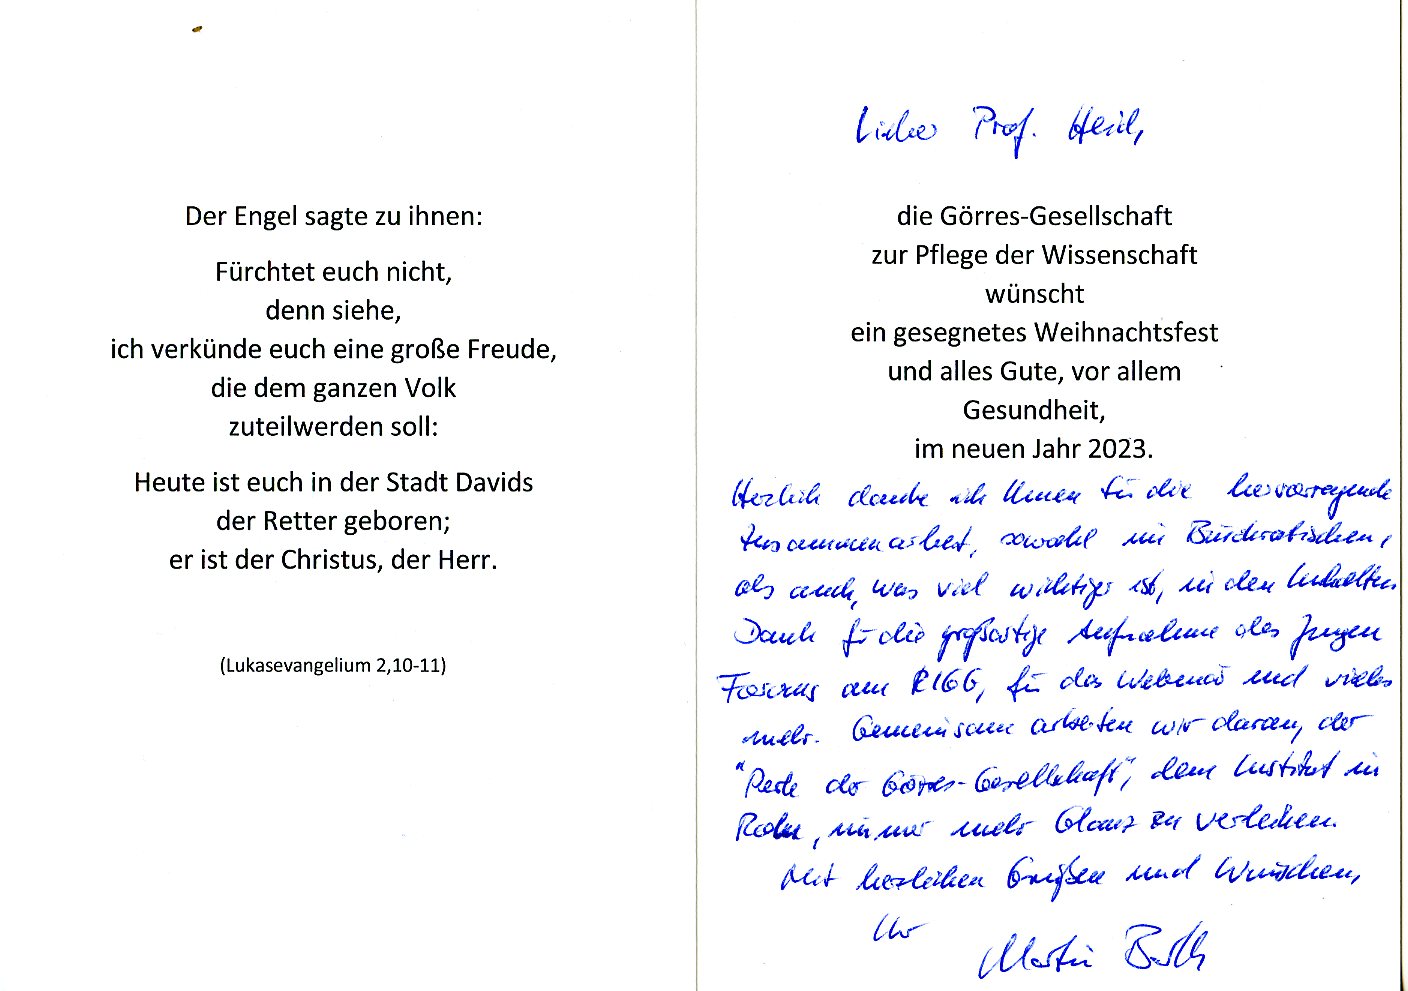 Der Engel sagte zu ihnen:
Fürchtet euch nicht,
denn siehe,
ich verkünde euch eine große Freude,
die dem ganzen Volk
zuteilwerden soll:
Heute ist euch in der Stadt Davids
der Retter geboren;
er ist der Christus, der Herr.
(Lukasevangelium 2,10-11)
Lieber Prof. Heid,
die Görres-Gesellschaft
zur Pflege der Wissenschaft
wünscht
ein gesegnetes Weihnachtsfest
und alles Gute, vor allem
Gesundheit,
im neuen Jahr 2023.
Herzlich danke ich Ihnen für die hervorragende
Zusammenarbeit, sowohl im Bürokratischen,
als auch, was viel wichtiger ist, in den Inhalten.
Dank für die großartige Aufnahme des Jungen
Forums am RIGG, für das Webinar und vieles
mehr. Gemeinsam arbeiten wir daran, der
"Perle der Görres-Gesellschaft", dem Institut in
Rom, immer mehr Glanz zu verleihen.
Mit herzlichen Grüßen und Wünschen,
Ihr
Martin